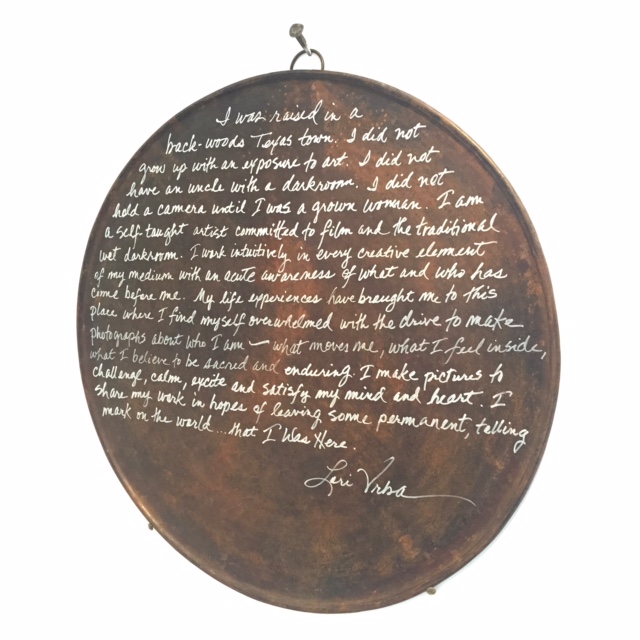 I was raised in a
back-woods Texas town. I did not
grow up with an exposure to art. I did not
have an uncle with a darkroom. I did not
hold a camera until I was a grown woman. I am
a self taught artist committed to film and the traditional
wet darkroom. I work intuitively in every creative element
of my medium with an acute awareness of what and who has
come before me. My life experiences have brought me to this
place where I find myself overwhelmed with the drive to make
photographs about who I am — what moves me, what I feel inside,
what I believe to be sacred and enduring. I make pictures to
challenge, calm, excite and satisfy my mind and heart. I
share my work in hopes of leaving some permanent, telling
mark on the world...that I Was Here.
Lori Vrba